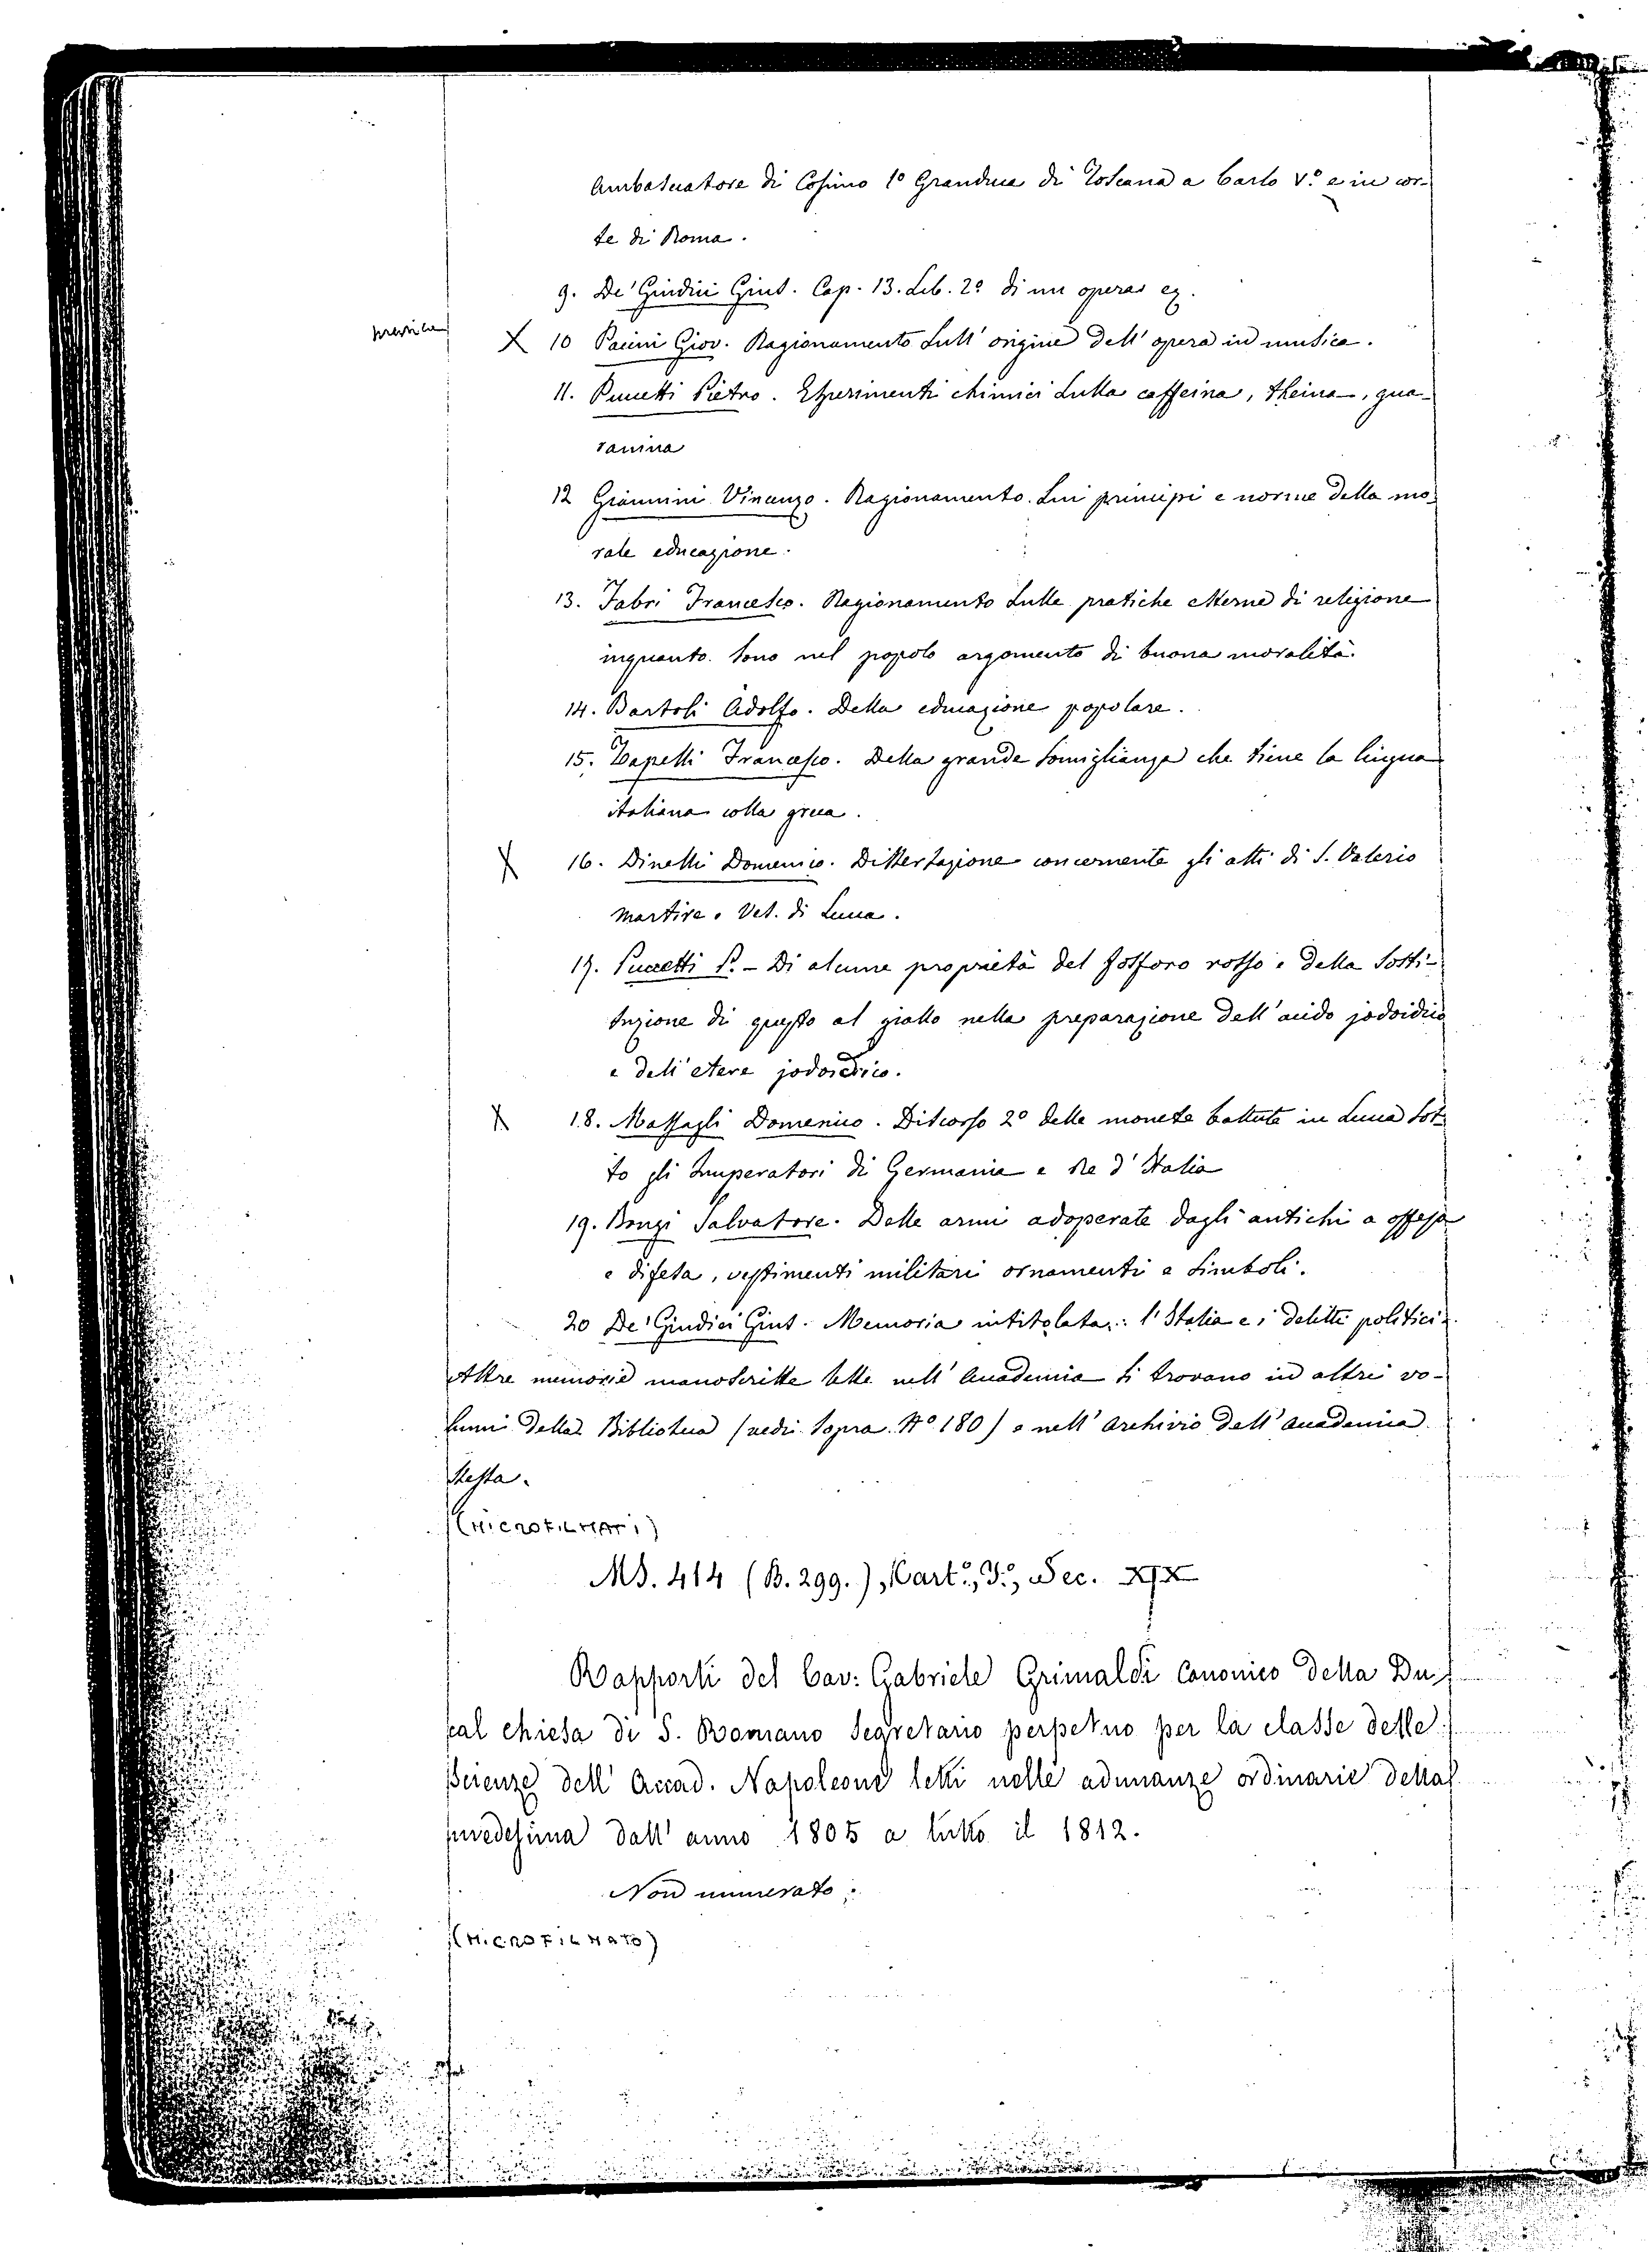 Ambasciatore di Cosimo 1º Granduca di Toscana a Carlo Vº e in cor-
te di Roma.
9. De' Giudici Gius. Cap. 13. Lib. 2º di un operas
X 10 Pacini Giov. Ragionamento sull' origine dell' opera in musica.
11. Puccetti Pietro. Esperimenti chimici sulla caffeina, theina, gua-
ranina
12 Giannini Vincenzo. Ragionamento. Sui principi e norme della mo-
rale educazione.
13. Fabri Francesco. Ragionamento sulle pratiche esterne di religione
inquanto sono nel popolo argomento di buona moralità.
14. Bartoli Adolfo. Della educazione popolare.
15. Zapelli Francesco. Della grande somiglianza che tiene la lingua
italiana colla greca.
X 16. Dinelli Domenico. Dissertazione concernente gli atti di S. Valerio
martire e Ves. di Lucca.
17. Puccetti P. - Di alcune proprietà del fosforo rosso e della sosti-
tuzione di questo al giallo nella preparazione dell' acido jodoidrico
e dell' etere jodoidrico.
X 18. Massagli Domenico. Discorso 2º delle monete battute in Lucca sot-
to gli Imperatori di Germania e Re d' Italia
19. Bongi Salvatore. Delle armi adoperate dagli antichi a offesa
e difesa, vestimenti militari ornamenti e simboli.
20 De' Giudici Gius. Memoria intitolata: l' Italia e i delitti politici.
Altre memorie manoscritte lette nell' Accademia si trovano in altri vo-
lumi della Biblioteca (vedi sopra Nº 180) e nell' archivio dell' accademia
stessa.
(MICROFILMATI)
MS. 414 (B. 299.), Cart., Sec. XIX
Rapporti del Cav: Gabriele Grimaldi Canonico della Du-
cal chiesa di S. Romano Segretario perpetuo per la classe delle
scienze dell' Accad. Napoleone letti nelle adunanze ordinarie della
medesima dall' anno 1805 a tutto il 1812.
Non numerato.
(MICROFILMATO)